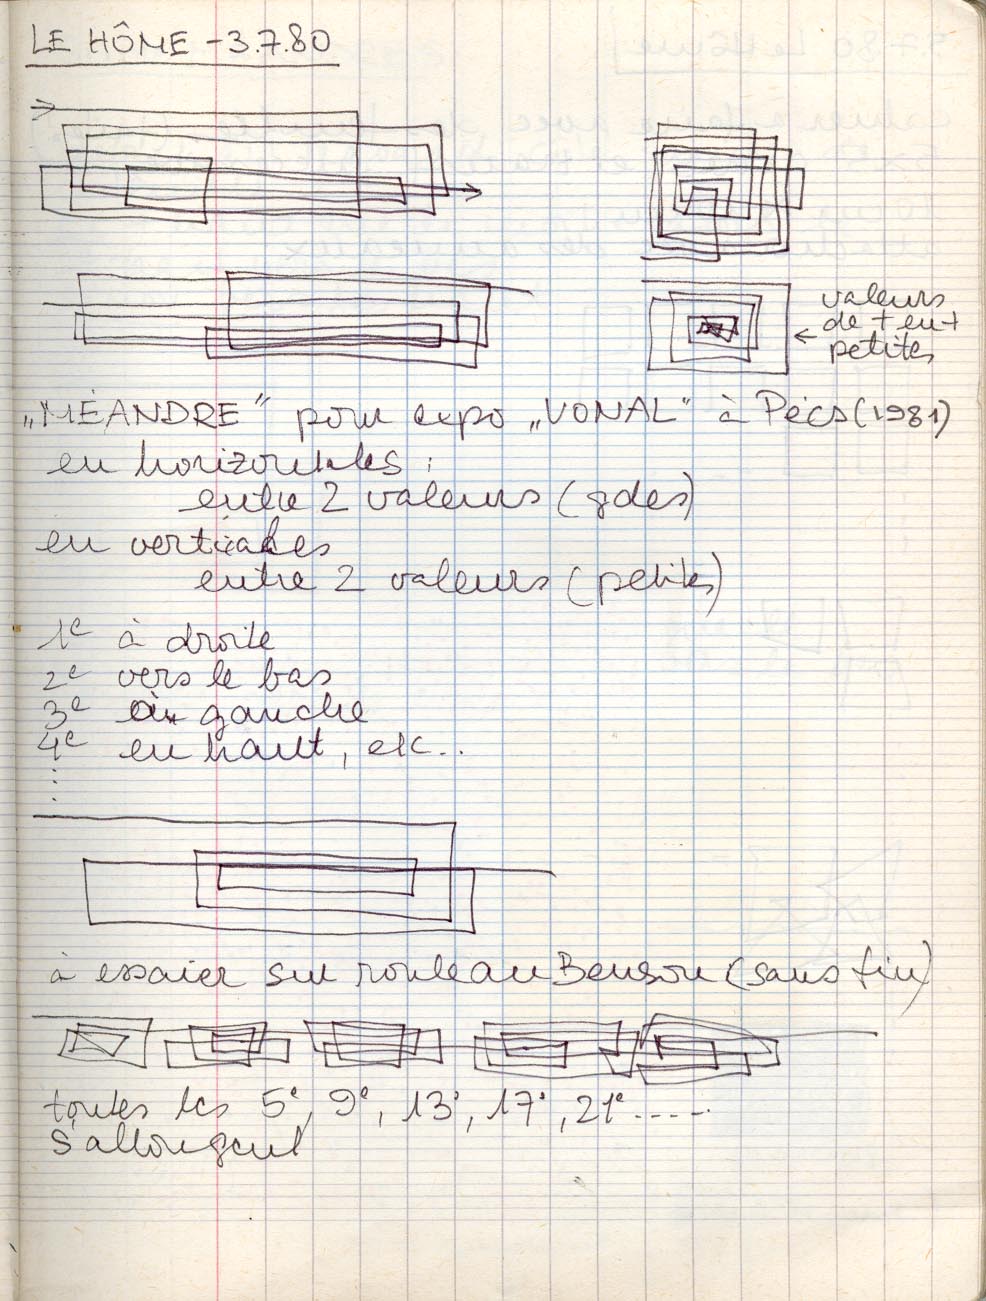 LE HÔME - 3.7.80
valeurs
de + en +
petites
„MÉANDRE" pour expo „VONAL" à Pécs (1981)
en horizontales :
entre 2 valeurs (gdes)
en verticales
entre 2 valeurs (petites)
1e à droite
2e vers le bas
3e à gauche
4e en haut, etc..
à essaier sur rouleau Benson (sans fin)
toutes les 5e, 9e, 13e, 17e, 21e .....
s'allongent